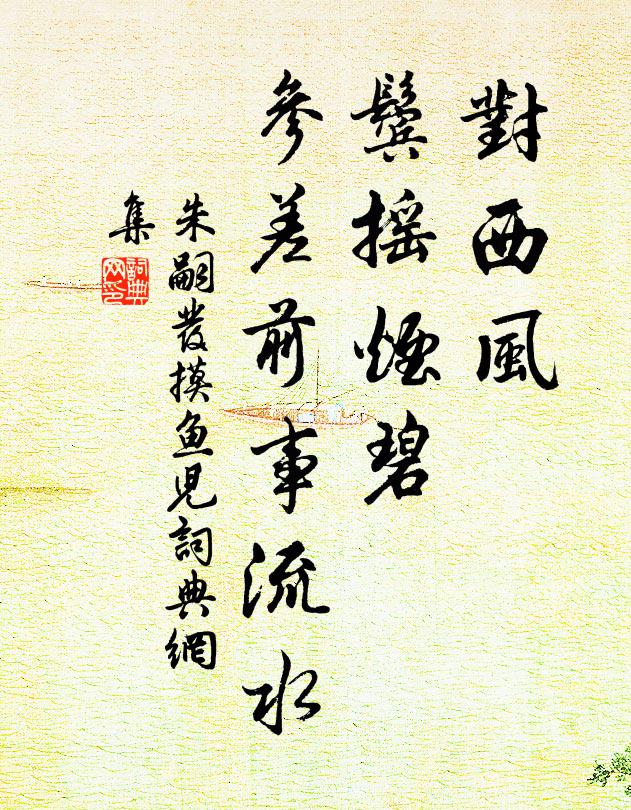 對西風
鬢搖煙碧
參差前事流水
朱嗣發摸魚兒詞典網
集
詞典
网印